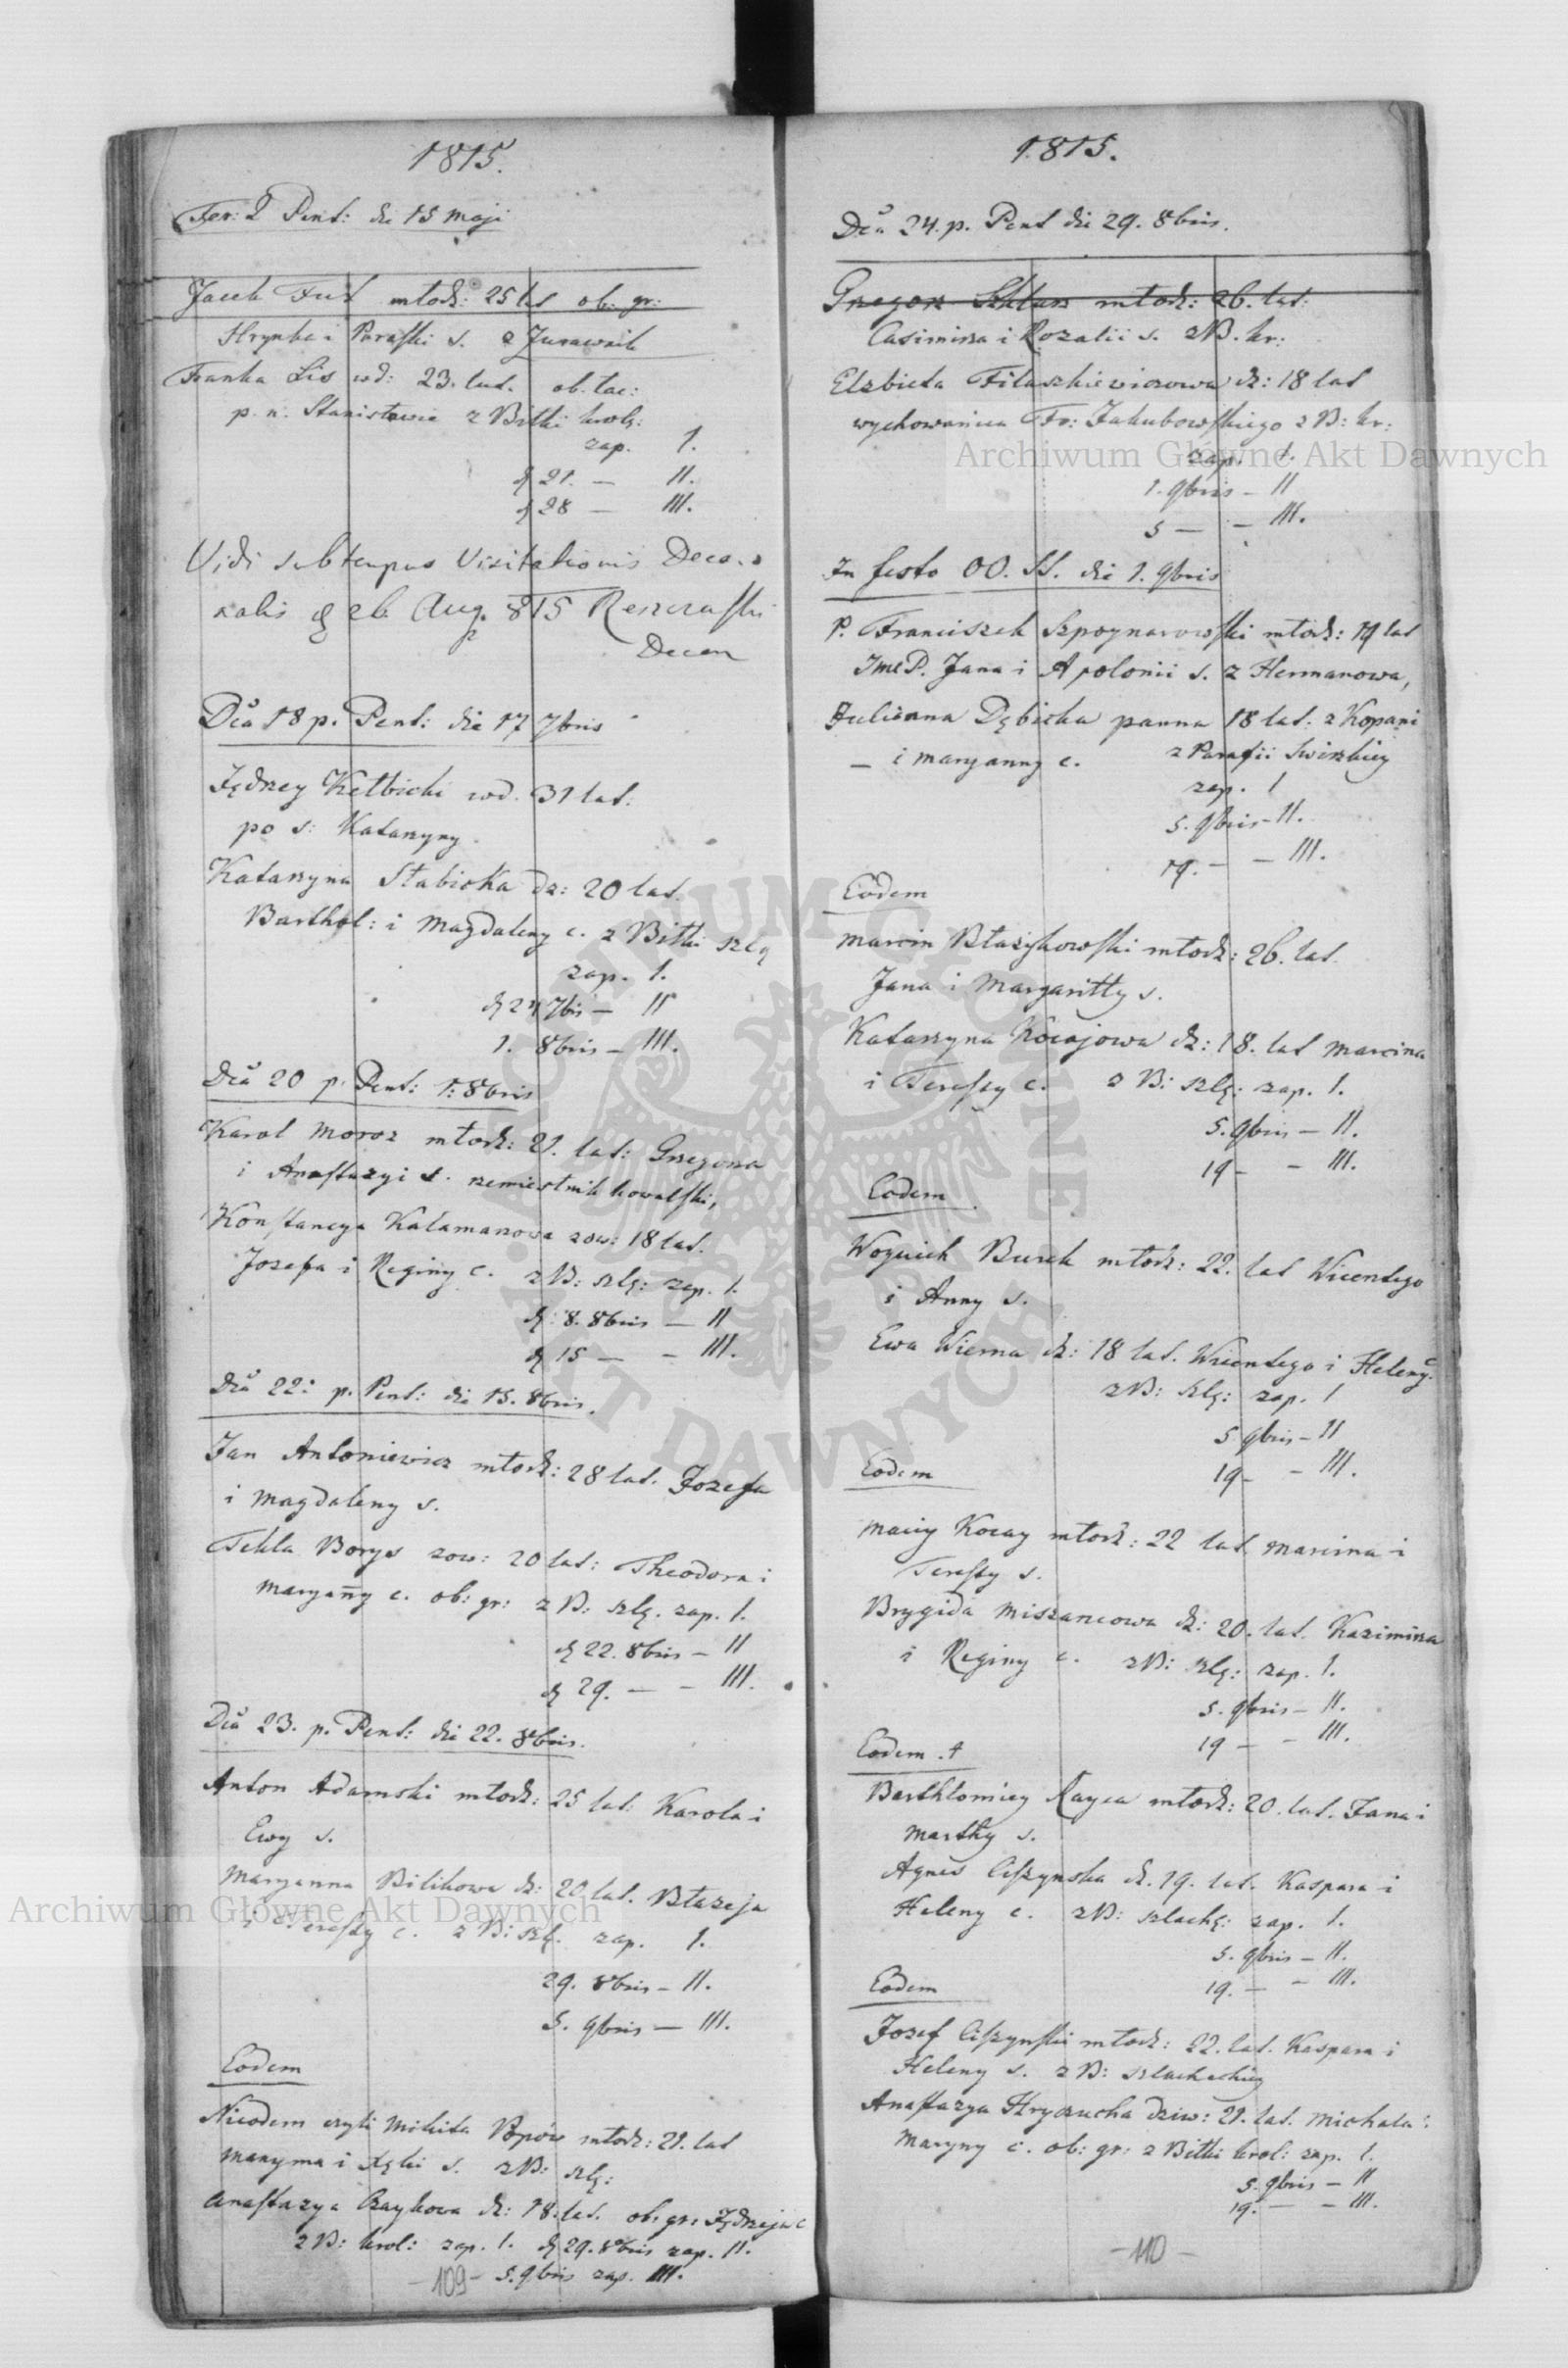 1815.
Fer: 2 Pent: die 15 maji
Jacek Fut młodz: 25 lat ob: gr:
Hrynka i Paraski s. z Żurawnik
Franka Lis wd: 23. lat. ob. łac:
p. n. Stanisławie z Bitki krolę:
zap. I.
d 21. — II.
d 28 — III.
Vidi sub tempus Visitationis Deca
nalis d 26 Aug. 815
Decan
Dca 18 p. Pent: die 17 7bris
Jędrzey Kełbicki wd. 31 lat.
po s: Katarzyny
Katarzyna Słabicka dz: 20 lat.
Barthol: i Magdaleny c. z Bitki szlę
zap. I.
d 24 7bris — II
1. 8bris — III.
Dca 20 p. Pent: 1. 8bris
Karol Moroz młodz: 21. lat: Grzegorza
i Anastazyi s. rzemieslnik kowalski,
Konstancya Kałamarzowa zow: 18 lat.
Jozefa i Reginy c. z B: szlę: zap. I.
d: 8. 8bris — II
d 15 — — III.
Dca 22: p. Pent: die 15. 8bris.
Jan Antoniewicz młodz: 28 lat. Jozefa
i Magdaleny s.
Tekla Borys zow: 20 lat: Theodora i
Maryanny c. ob: gr: z B: szlę. zap. I.
d 22. 8bris — II
d 29. — — III.
Dca 23. p. Pent: die 22. 8bris.
Anton Adamski młodz: 25 lat: Karola i
Ewy s.
Maryanna Bilikowa dz: 20 lat. Błazeja
i Teressy c. z B: szlę. zap. I.
29. 8bris — II.
5. 9bris — III.
Eodem
Nicodem czyli Mikita Popów młodz: 21. lat
s. z B: szlę:
Anastazya Czaykowa dz: 18. lat. ob: gr: Jędrzeja c
z B: krol: zap. I. d 29. 8bris zap. II.
— 109 — 5. 9bris zap. III.
1815.
Dca 24. p. Pent die 29. 8bris.
Gregorz młodz: 26. lat:
Casimirza i Rozalii s. z B. kr:
Elzbieta Filaszkiewiczowa dz: 18 lat
wychowanica Fr: Jakubowskiego z B: kr:
zap. I.
1. 9bris — II
5 — — III.
In festo OO. SS. die 1. 9bris
P. Franciszek Szpoynarowski młodz: 19 lat
Jme P. Jana i Apolonii s. z Hermanowa,
Julianna Dębicka panna 18 lat. z Kopani
— i Maryanny c. z Parafii Swirskiey
zap. I
5. 9bris — II.
19. — — III.
Eodem
Marcin Błazykowski młodz: 26. lat.
Jana i Margaritty s.
Katarzyna Kocajowa dz: 18. lat Marcina
i Teressy c. z B: szlę: zap. I.
5. 9bris — II.
19 — — III.
Eodem
Woyciech Burek młodz: 22. lat Wicentego
i Anny s.
Ewa Wierna dz: 18 lat. Wicentego i Heleny c.
z B: szlę: zap. I
5 9bris — II
19 — — III.
Eodem
Maciy Kocay młodz: 22 lat Marcina i
Teressy s.
Brygida Miszancowa dz: 20. lat. Kazimirza
i Reginy c. z B: szlę: zap. I.
5. 9bris — II.
19 — — III.
Eodem. +
Barthłomiey Rayca młodz: 20. lat. Jana i
Marthy s.
Agnes Ciszynska dz. 19. lat. Kaspara i
Heleny c. z B: szlachę: zap. I.
5. 9bris — II.
19. — — III.
Eodem
Jozef Ciszynski młodz: 22. lat. Kaspara i
Heleny s. z B: szlacheckiey
Anastazya Hryczucha dziw: 21. lat. Michała i
Maryny c. ob: gr: z Bitki krol: zap. I.
5. 9bris — II
19. — — III.
— 110 —
Archiwum Główne Akt Dawnych
Archiwum Główne Akt Dawnych
ARCHIWUM GŁÓWNE AKT DAWNYCH